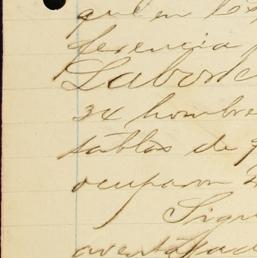 que en
ferencia
Labor
34 hombre
tablas de
ocuparon
Sigu
aventajad